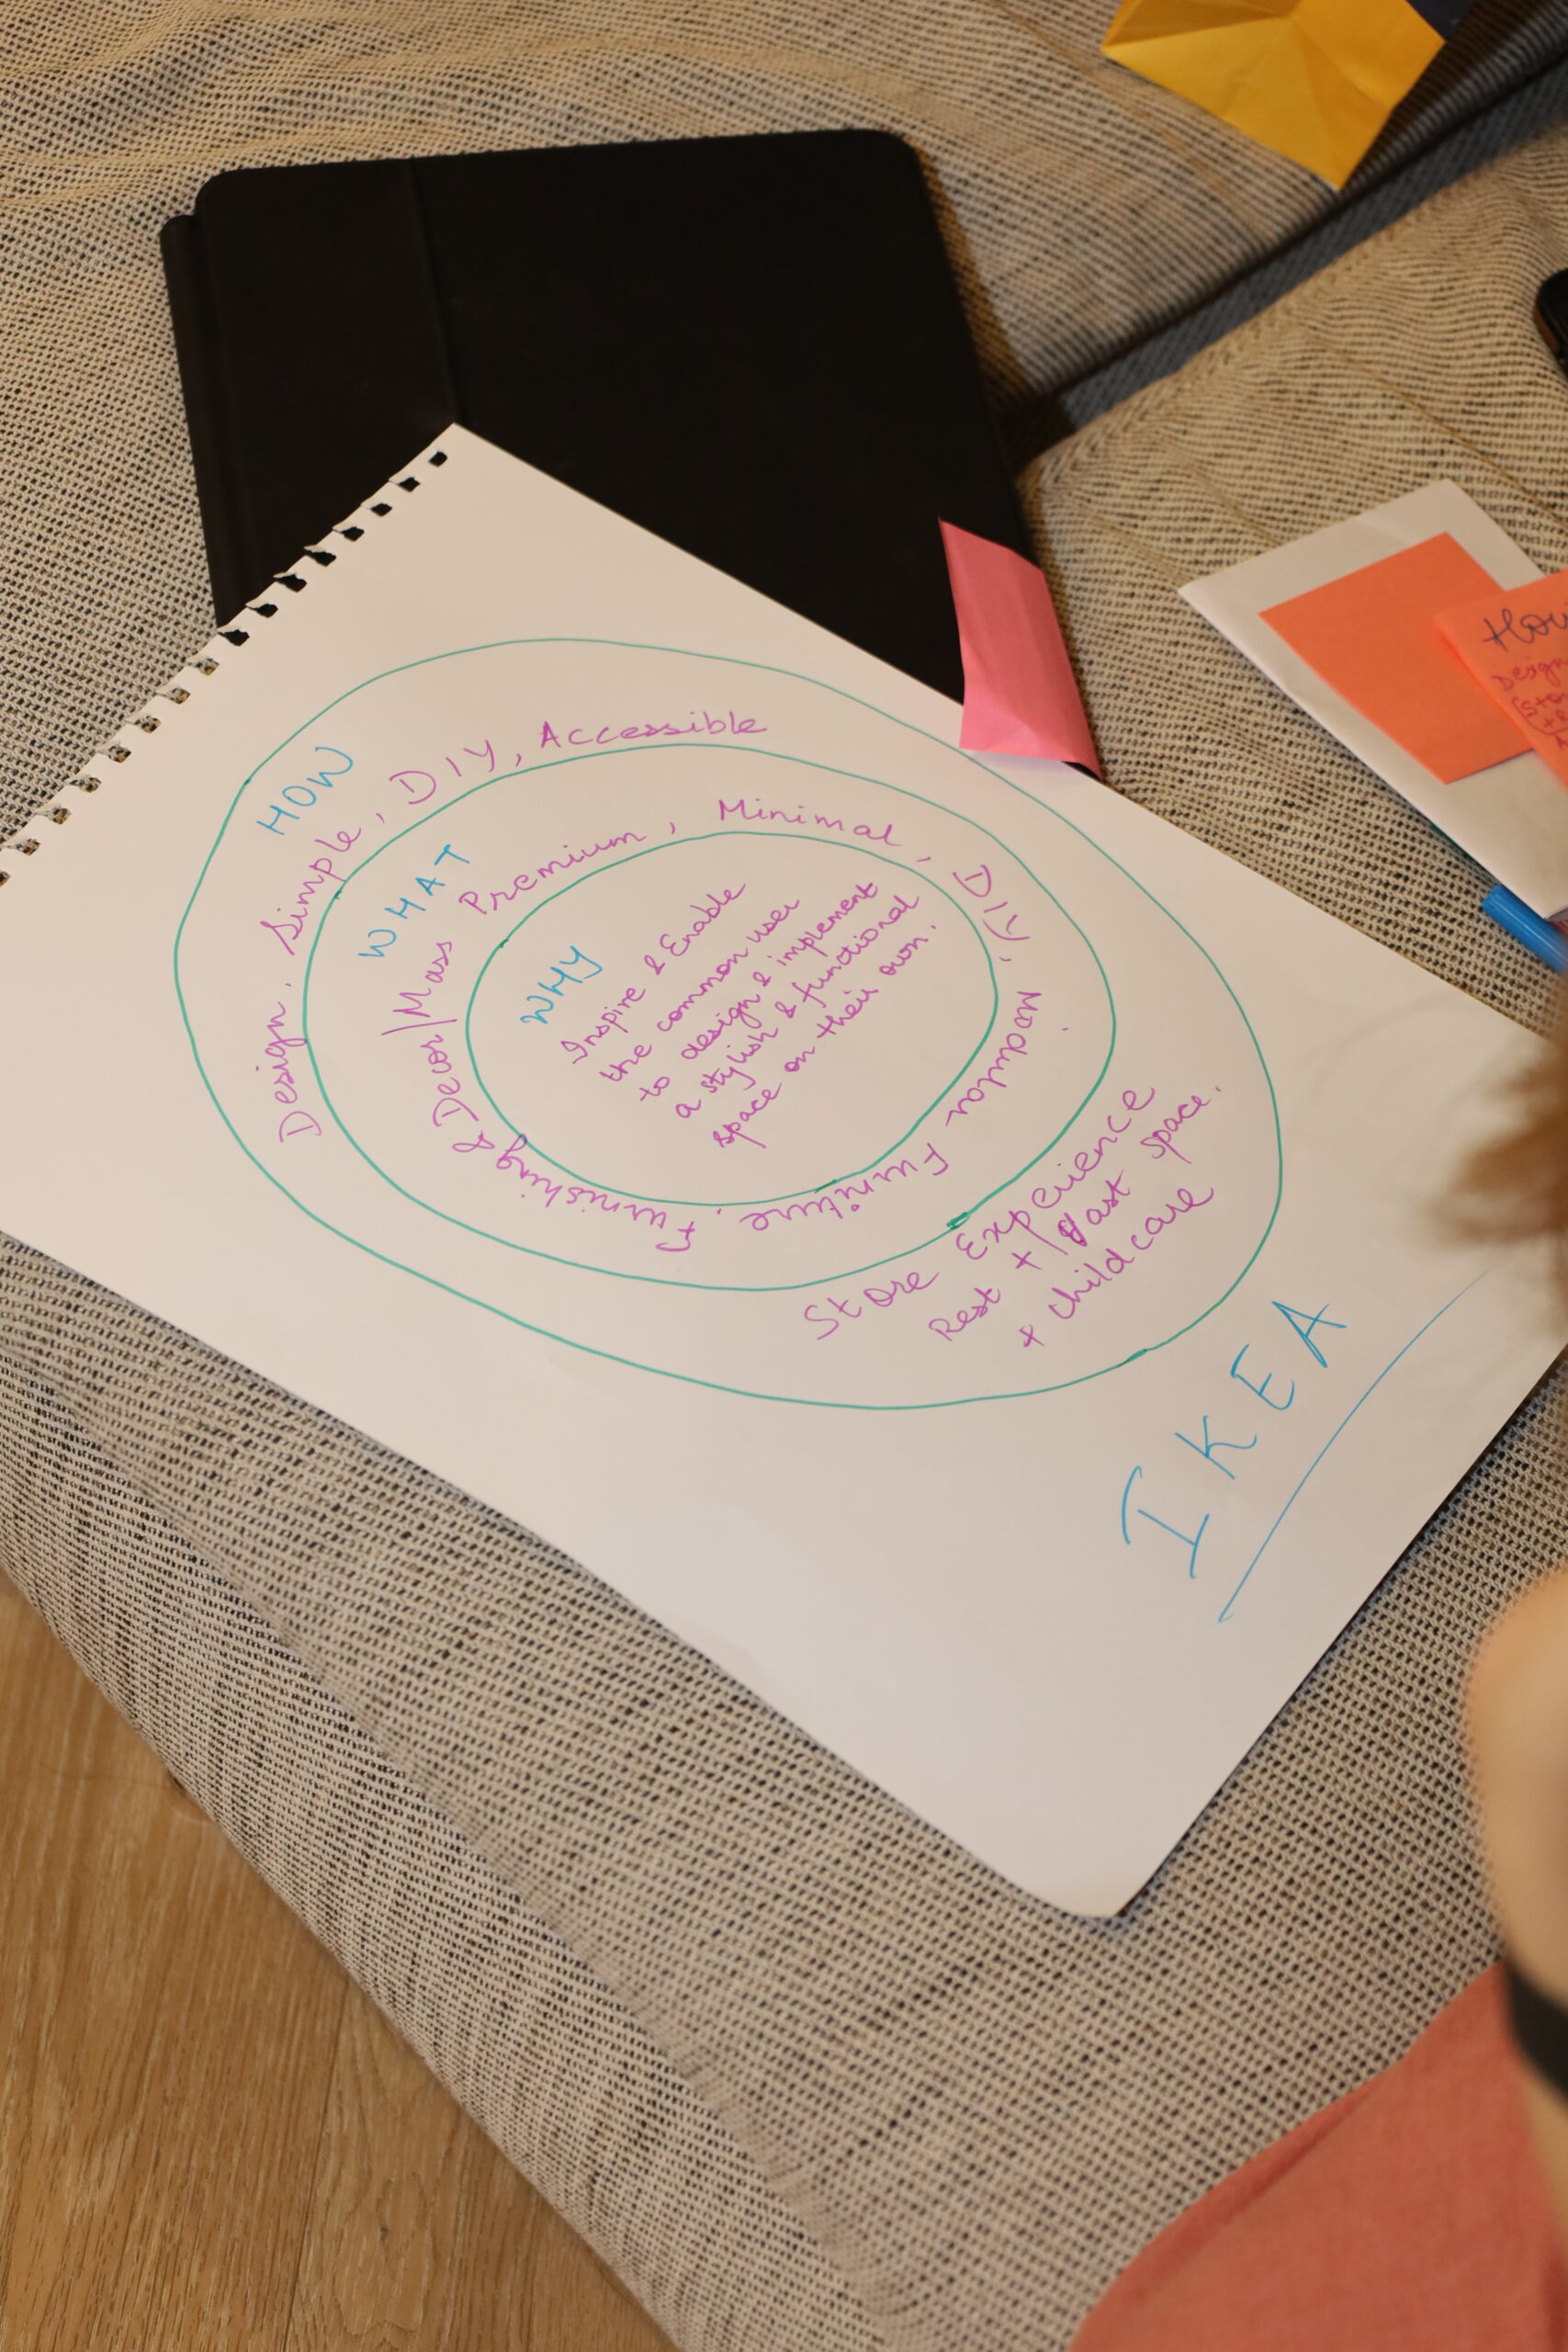 HOW
Design, Simple, DIY, Accessible
WHAT
Furnishing & Decor/Mass Premium, Minimal, DIY, Furniture.
WHY
Inspire & Enable
the common user
to design & implement
a stylish & functional
space on their own.
Store Experience
Rest + space.
+ childcare
IKEA
How
Design